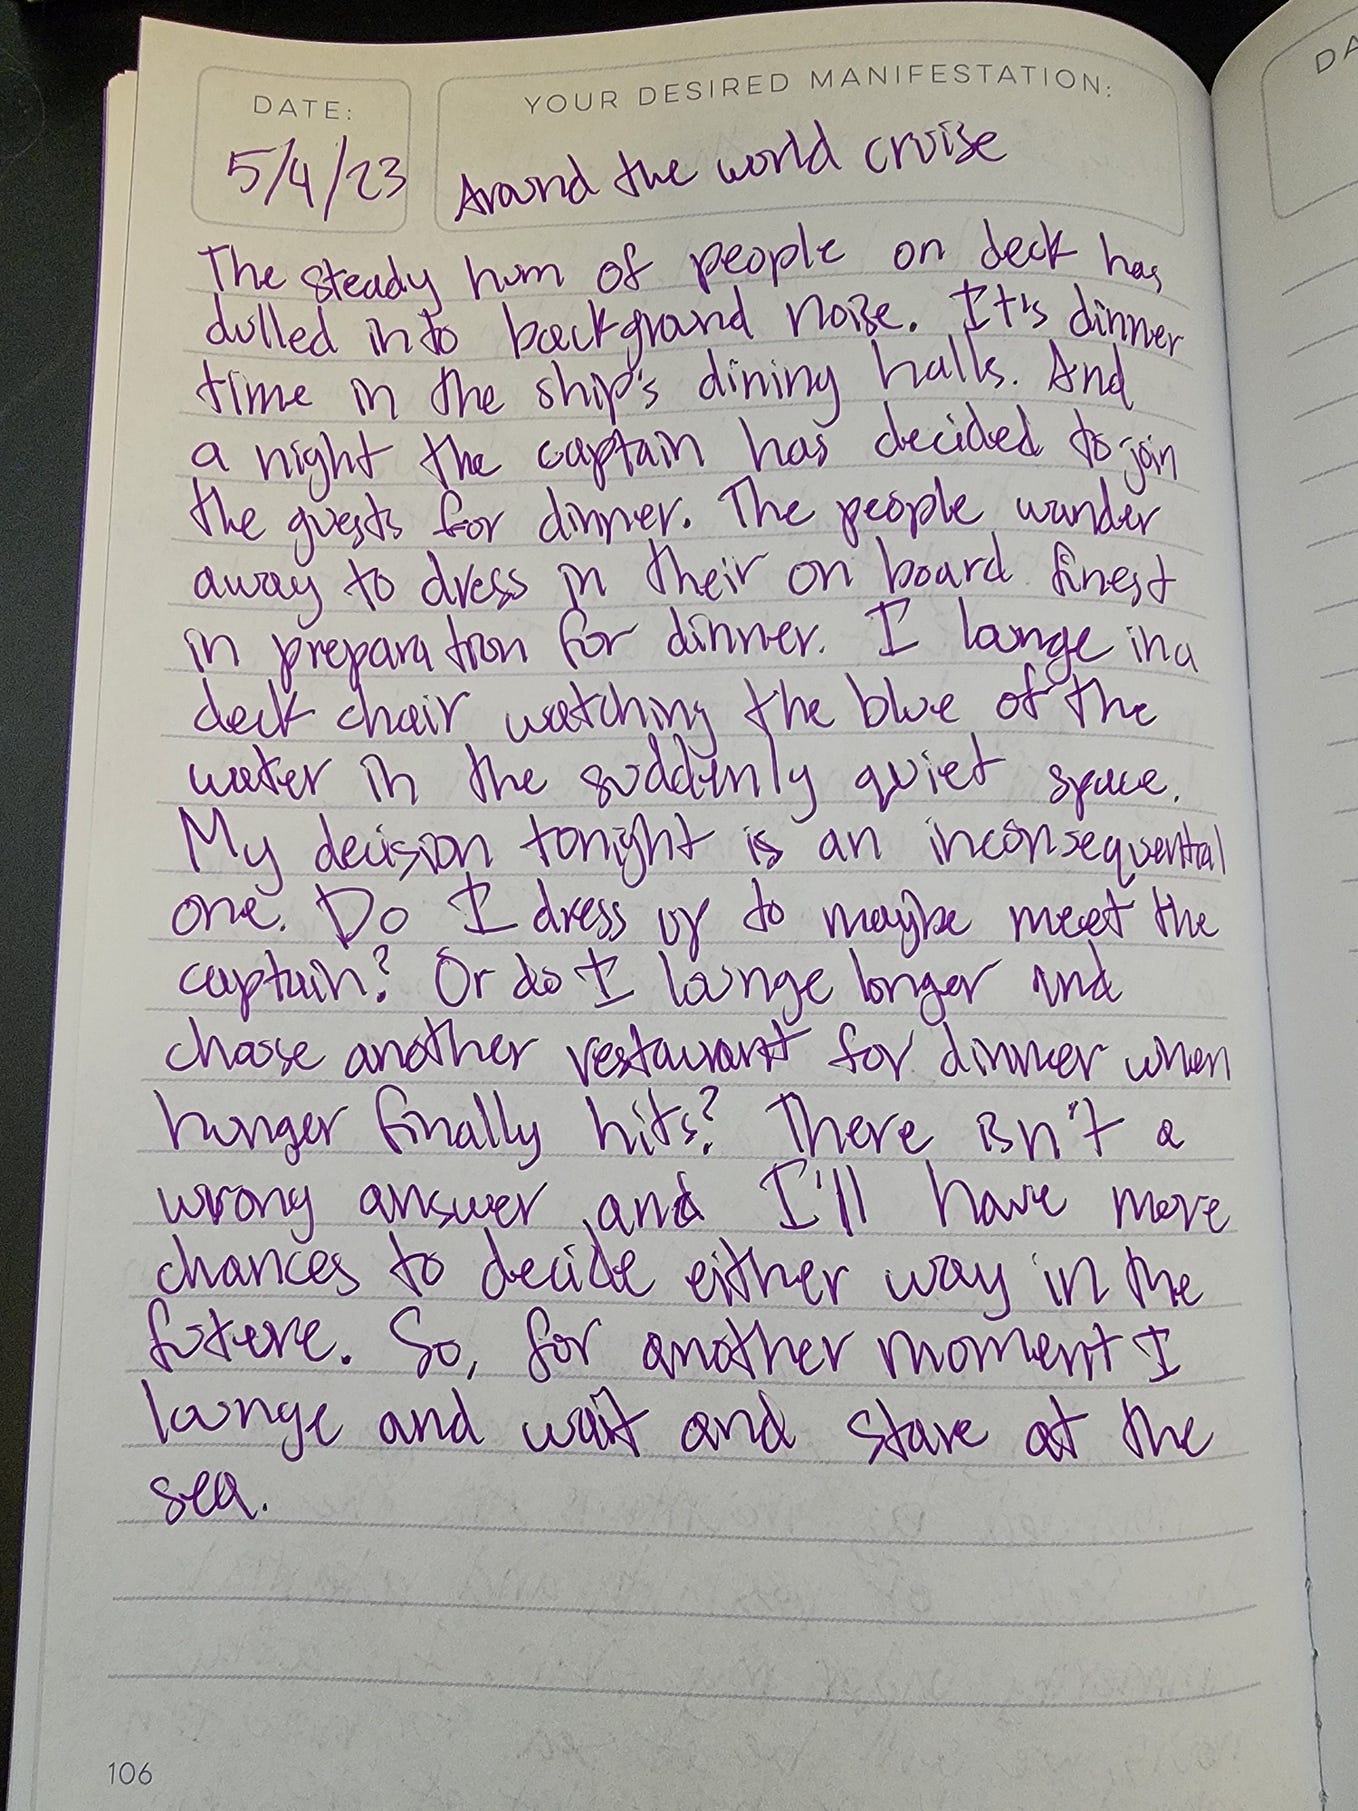 DATE:
YOUR DESIRED MANIFESTATION:
DA
5/4/23
Around the world cruise
The steady hum of people on deck has
dulled into background noise. It's dinner
time in the ship's dining halls. And
a night the captain has decided to join
the guests for dinner. The people wander
away to dress in their on board finest
in preparation for dinner. I lounge in a
deck chair watching the blue of the
water in the suddenly quiet space.
My decision tonight is an inconsequential
one. Do I dress up to maybe meet the
captain? Or do I lounge longer and
choose another restaurant for dinner when
hunger finally hits? There isn't a
wrong answer and I'll have more
chances to decide either way in the
future. So, for another moment I
lounge and wait and stare at the
sea.
106